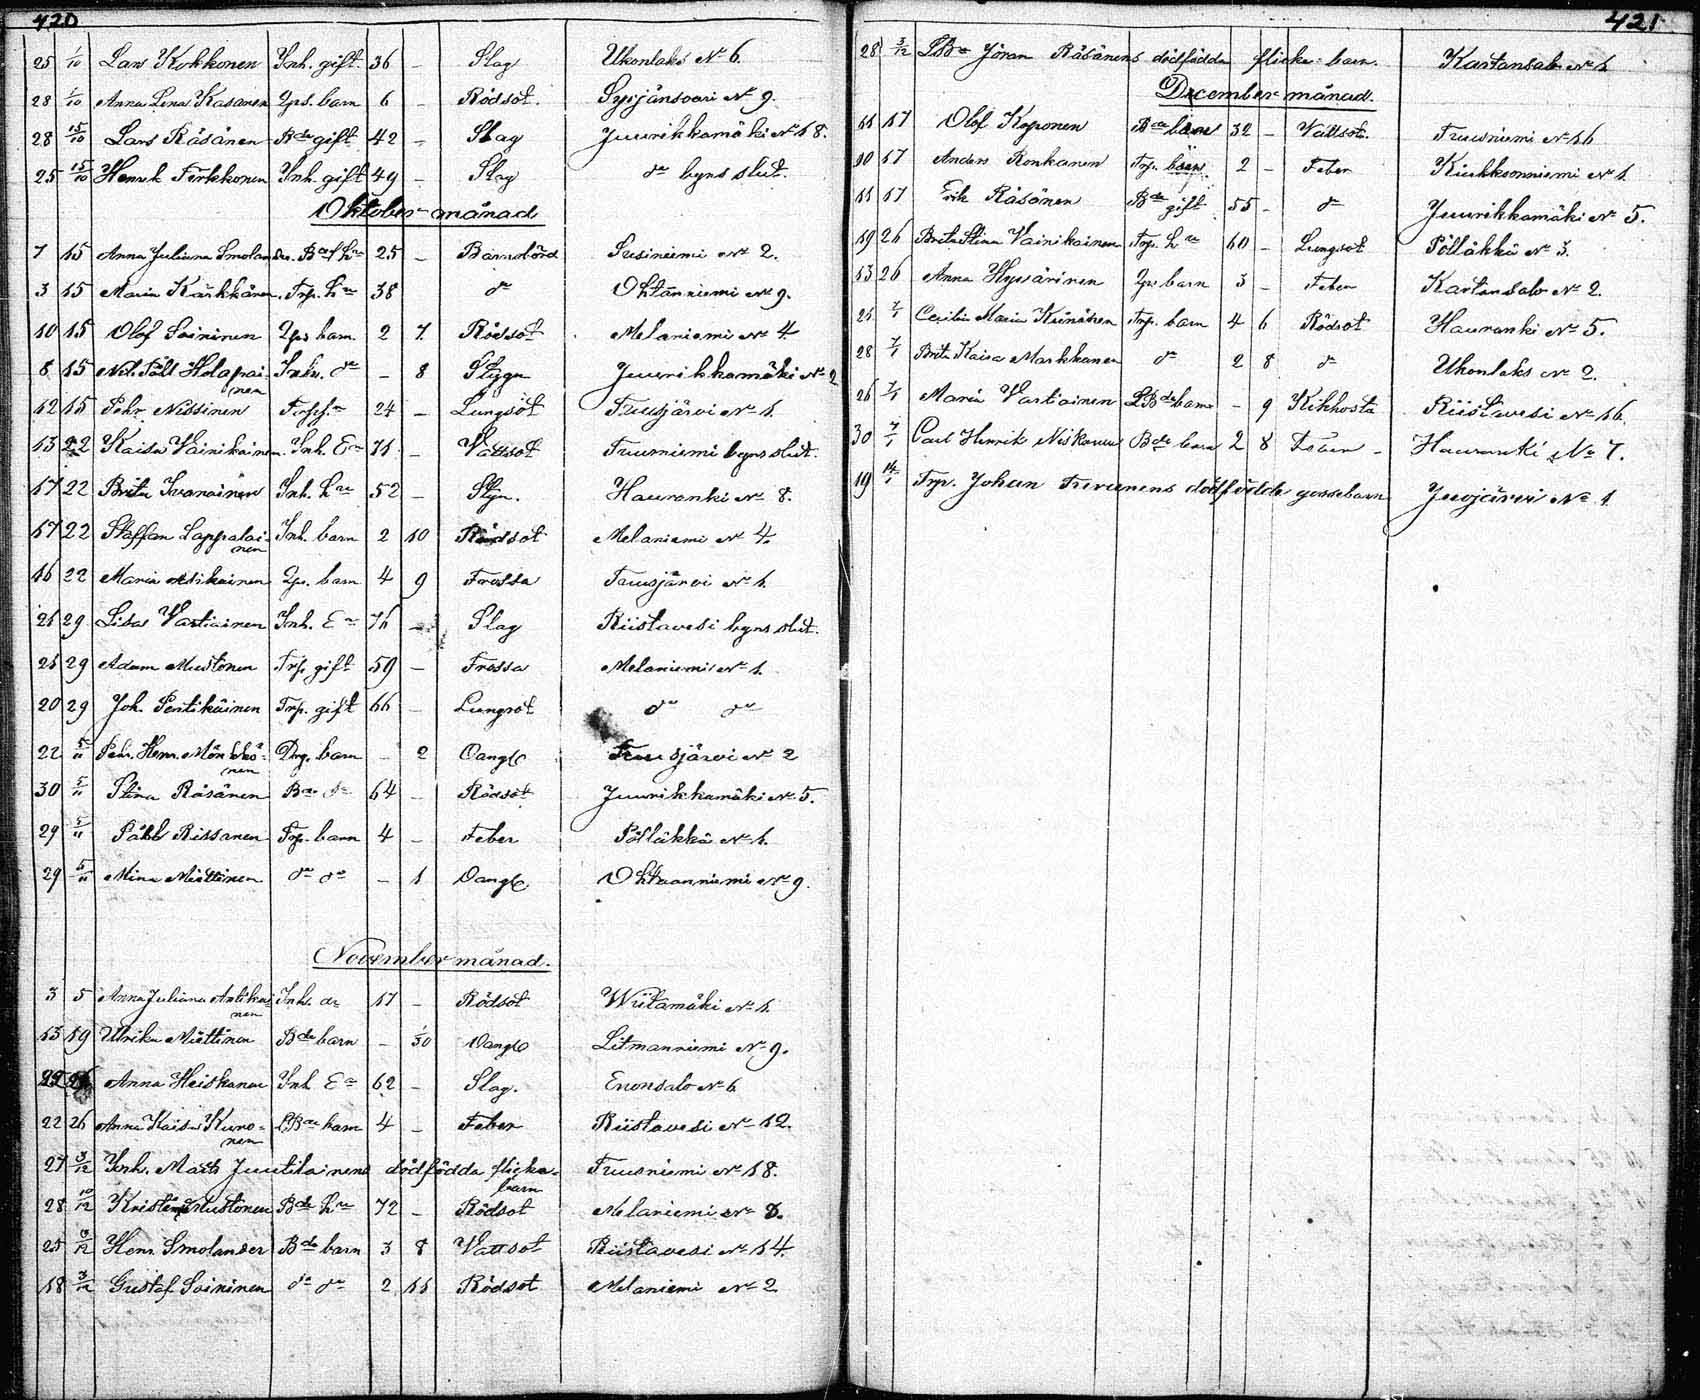 420
25 1/10 Lars Kokkonen Inh. gift. 36 – Slag Ukonlaks No 6.
28 1/10 Anna Lena Kasanen Lps. barn 6 – Rödsot. Syrjänsaari No 9.
28 15/10 Lars Räsänen Bde gift 42 – Slag Juurikkamäki No 18.
25 15/10 Henrik Tirkkonen Inh. gift 49 – Slag do byns slut.
Oktober månad
7 15 Anna Juliana Smolander Bdes hu 25 – Barnsbörd Susiniemi No 2.
3 15 Maria Kärkkänen Trp. hu 38 do Ohtanniemi No 9.
10 15 Olof Soininen Lps barn 2 7. Rödsot Melaniemi No 4.
8 15 Nils Påll Holapai- Inhs. do – 8 Slygn Juurikkamäki No 2
nen
12 15 Pehr Nissinen 24 – Lungsot Tuusjärvi No 1.
13 22 Kaisa Vainikainen. Inh. Ea 71 – Vattsot Tuusniemi byns slut.
17 22 Brita Ivanainen Inh. hu 52 – Slyn. Hauranki No 8.
17 22 Staffan Lappalai- Inh. barn 2 10 Rödsot Melaniemi No 4.
nen
16 22 Maria Asikainen Lps. barn 4 9 Frossa Tuusjärvi No 1.
21 29 Lisa Vartiainen Inh. Ea 76 – Slag Riistavesi byns slut.
21 29 Adam Mustonen Trp. gift 59 – Frossa Melaniemi No 1.
20 29 Joh. Pentikäinen Trp. gift 66 – Lungsot do do
22 5/11 Pehr Henr. Mönkkö- Drg. barn – 2 Oangf. Tuusjärvi No 2
nen
30 5/11 Stina Räsänen Bde Ea 64 – Rödsot Juurikkamäki No 5.
29 5/11 Påhl Rissanen Trp. barn 4 – Feber Pölläkkä No 1.
29 5/11 Mina Miettinen do do – 1 Oangf. Ohtaanniemi No 9.
November månad.
3 5 Anna Juliana Antikai- Inh. dr 17 – Rödsot Wiitamäki No 1.
nen
13 19 Ulrika Miettinen Bde barn – 1/30 Oangf. Litmanniemi No 9.
22 26 Anna Heiskanen Inh Ea 62 – Slag. Enonsalo No 6
22 26 Anna Kaisa Kuno- LBde barn 4 – Feber Riistavesi No 12.
nen
27 3/12 Inh. Mats Juutilainens dödfödda flicke- Tuusniemi No 18.
barn
28 10/12 Kristina Mustonen Bde hu 72 – Rödsot Melaniemi No 8.
25 3/12 Henr. Smolander Bde barn 3 8 Vattsot Riistavesi No 14.
18 3/12 Gustaf Soininen do do 2 11 Rödsot Melaniemi No 2
421
28 3/12 LBde Jöran Räsänens dödfödda flicke-barn. Kartansalo No 1
December månad.
11 17 Olof Koponen Bde 32 – Vattsot. Tuusniemi No 16
10 17 Anders Ronkanen Trp. barn 2 – Feber Kiukkoinniemi No 1.
11 17 Erik Räsänen Bde gift 55 – do Juurikkamäki No 5.
19 26 Brita Stina Vainikainen Trp. hu 60 – Lungsot Pölläkkä No 3.
13 26 Anna Hyvärinen Lps barn 3 – Feber Kartansalo No 2.
21 7/1 Cecilia Maria Keinänen Trp. barn 4 6 Rödsot Hauranki No 5.
28 7/1 Brita Kaisa Markkanen do 2 8 do Ukonlaks No 2.
26 7/1 Maria Vartiainen LBde barn – 9 Kikhosta Riistavesi No 16.
30 7/1 Carl Henrik Niskanen Bde barn 2 8 Feber – Hauranki No 7.
19 14/1 Trp. Johan Tervonens dödfödde gossebarn Juojärvi No 1